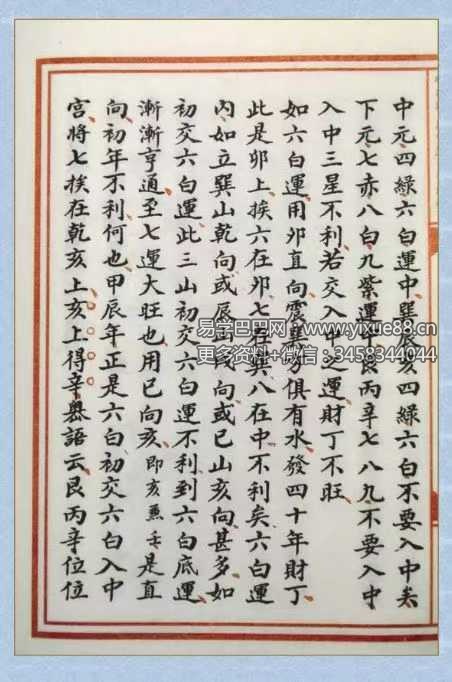 中元四綠六白運中巽辰亥四綠六白不要入中夫
下元七赤八白九紫運中艮丙辛七八九不要入中
入中三星不利若交入中之運財丁不旺
如六白運用卯直向震巽方俱有水發四十年財丁
此是卯上挨六在卯七在巽八在中不利矣六白運
內如立巽山乾向或辰山戌向或巳山亥向甚多如
初交六白運此三山初交六白運不利到六白底運
漸漸亨通至七運大旺也用巳向亥即亥兼壬是直
向初年不利何也甲辰年正是六白初交六白入中
宮將七挨在乾亥上亥上得辛奧語云艮丙辛位位
易学巴巴网 www.yixue88.cn
更多资料+微信：3458344044